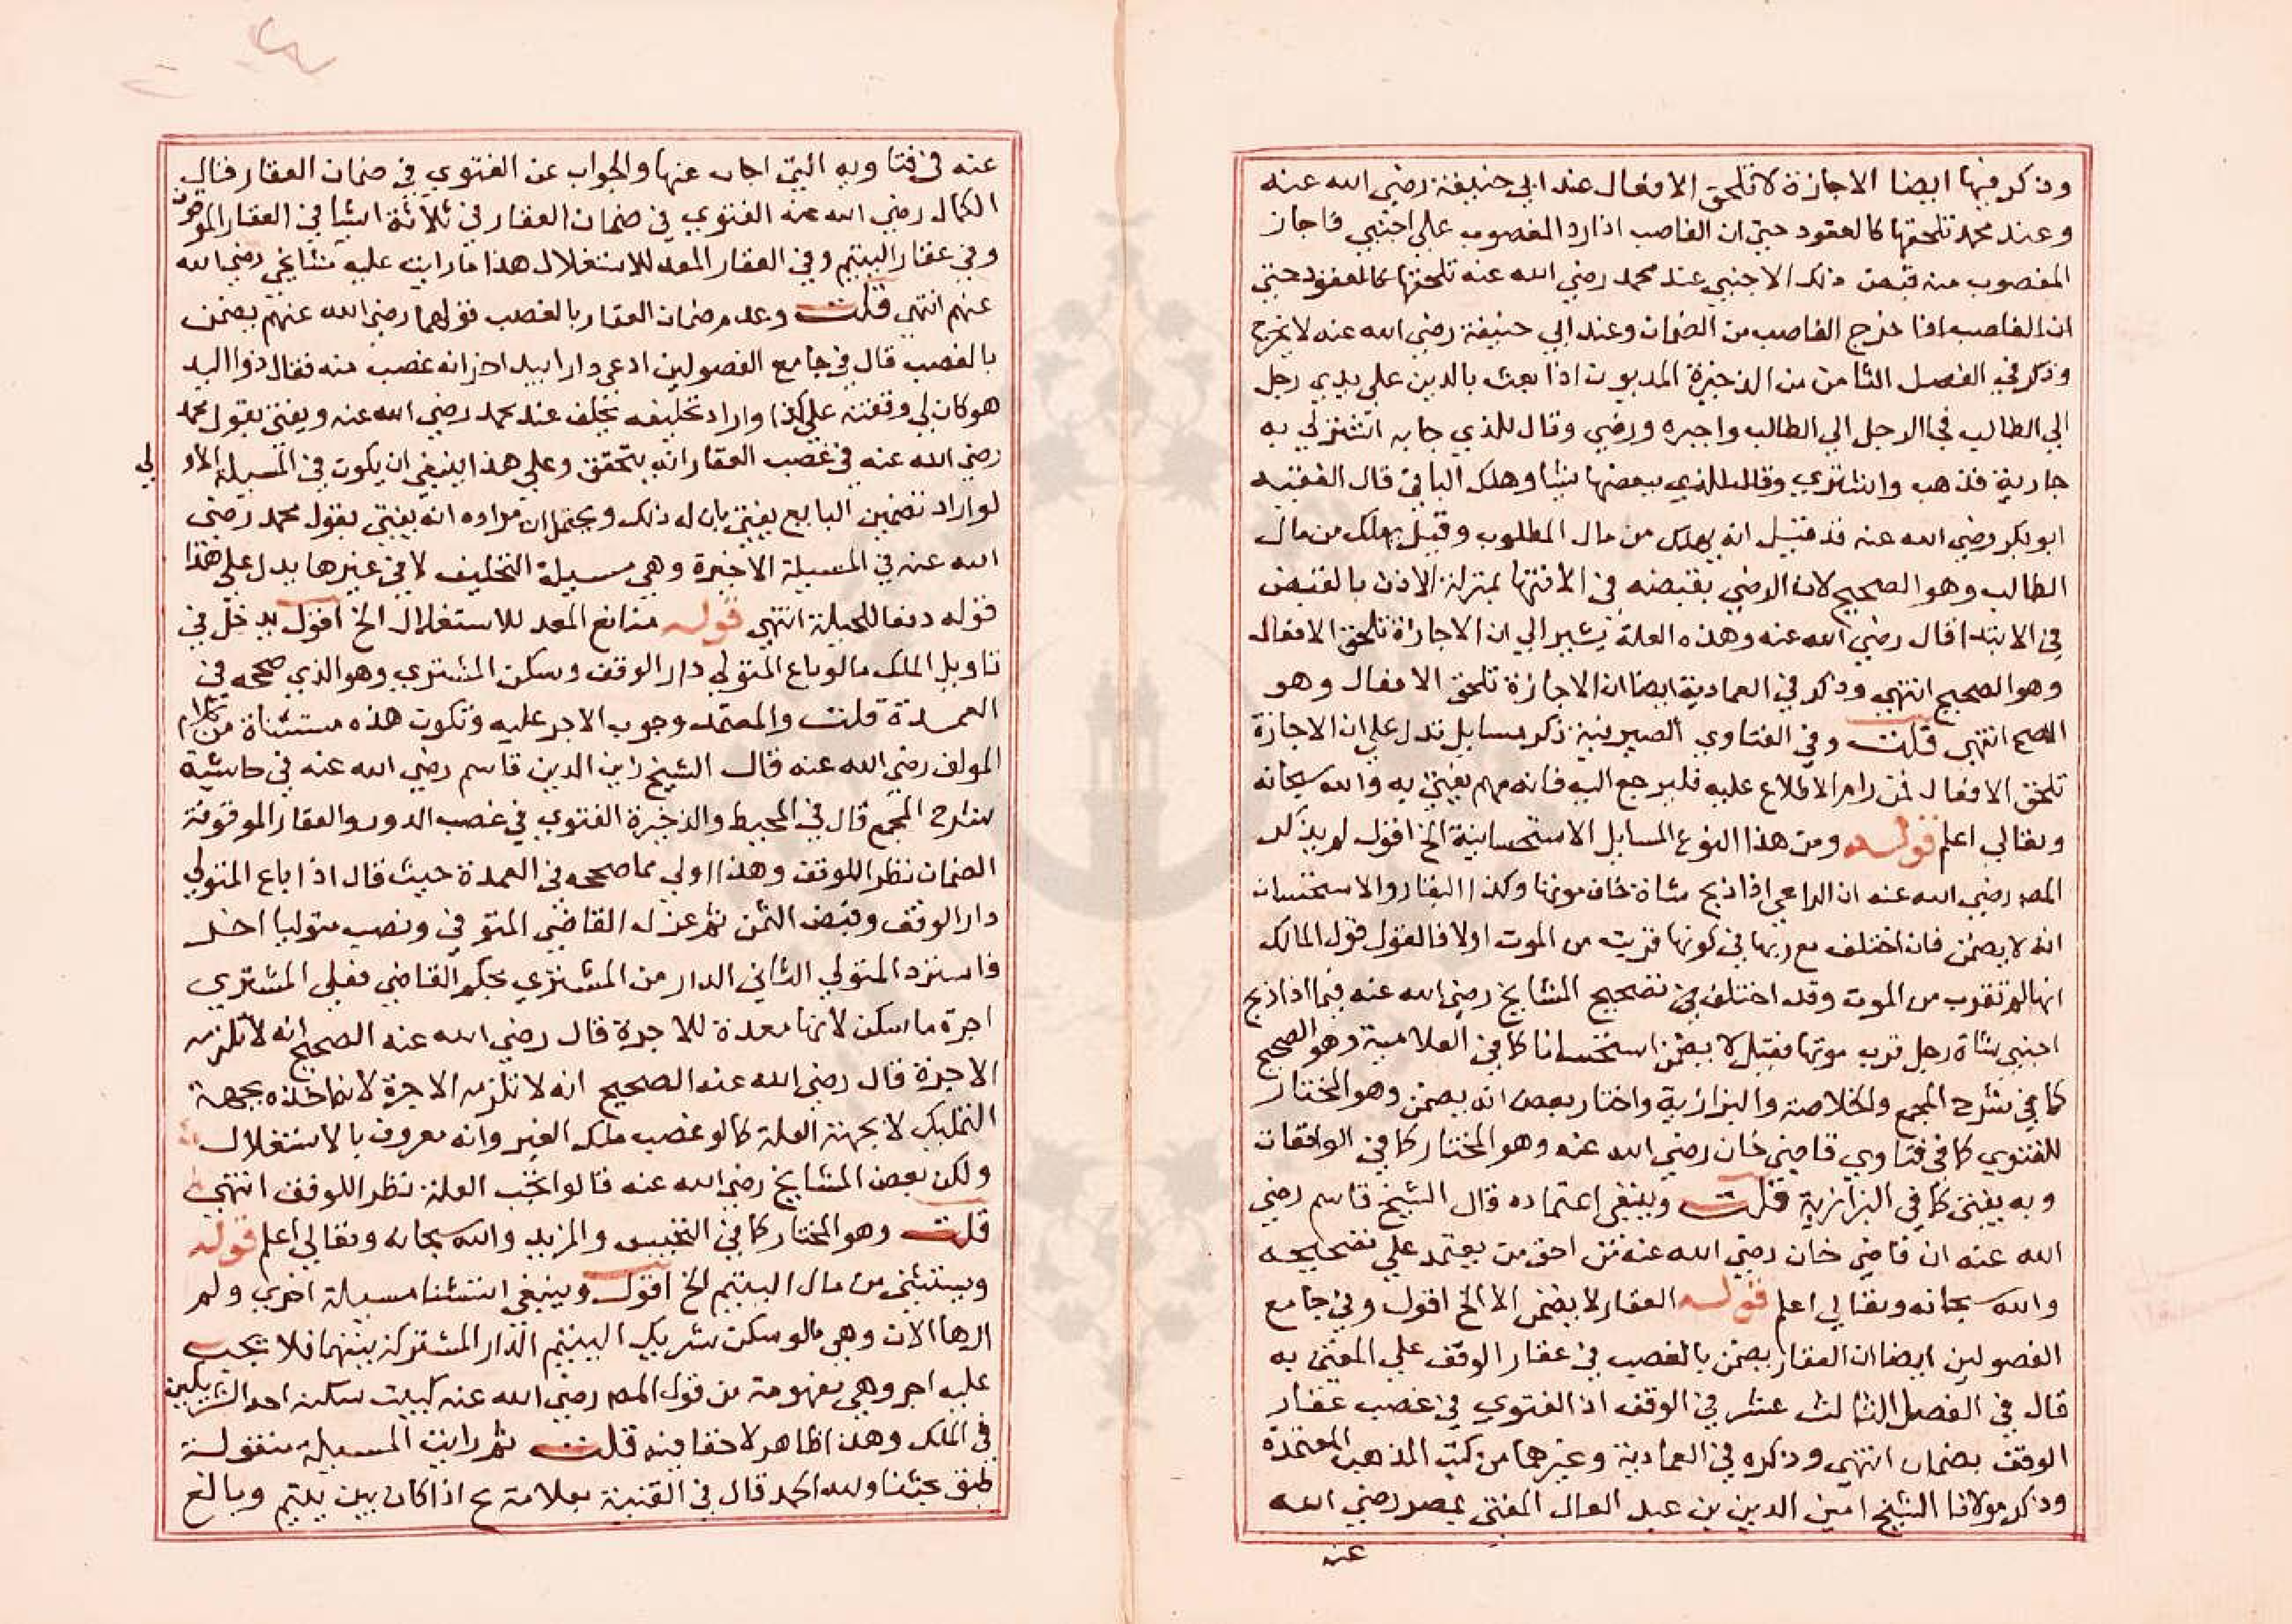 وذكر فيها ايضا الاجازة لا تلحق الافعال عند ابي حنيفة رضي الله عنه
وعند محمد تلحقها كالعقود حتي ان الغاصب اذا رد المغصوب علي اجنبي فاجاز
المغصوب منه قبض ذلك الاجنبي عند محمد رضي الله عنه تلحقها كالعقود حتي
ان الغاصب خرج الغاصب من الضمان وعند ابي حنيفة رضي الله عنه لا يخرج
وذكر في الفصل الثامن من الذخيرة المديون اذا بعث بالدين علي يدي رجل
الي الطالب فجا الرجل الي الطالب واخبره ورضي وقال للذي جا به اشتر لي به
جارية فذهب واشتري وقال للذي ببعضها شيا وهلك الباقي قال الفقيه
ابو بكر رضي الله عنه قد قيل انه يهلك من مال المطلوب وقيل يهلك من مال
الطالب وهو الصحيح لان الرضي بقبضه في الانتها بمنزلة الاذن بالقبض
في الابتدا قال رضي الله عنه وهذه العلة تشير الي ان الاجازة تلحق الافعال
وهو الصحيح انتهي وذكر في العمادية ايضا ان الاجازة تلحق الافعال وهو
الاصح انتهي قلت وفي الفتاوي الصيرفية ذكر مسايل تدل علي ان الاجازة
تلحق الافعال فمن رام الاطلاع عليه فليرجع اليه فانه مهم يفتي به والله سبحانه
وتعالي اعلم قوله ومن هذا النوع المسايل الاستحسانية الخ اقول لم يذكر
المص رضي الله عنه ان الراعي اذا ذبح شاة خاف موتها وكذا البقار والاستحسان
انه لا يضمن فان اختلف مع ربها في كونها قربت من الموت اولا فالقول قول المالك
انها لم تقرب من الموت وقد اختلف في تصحيح المشايخ رضي الله عنه فيما اذا ذبح
اجنبي شاة رجل قرب موتها فقيل لا يضمن استحسانا كما في العلامية وهو الصحيح
كما في شرح المجمع والخلاصة والبزازية واختار بعض انه يضمن وهو المختار
للفتوي كما في فتاوي قاضي خان رضي الله عنه وهو المختار كما في الواقعات
وبه يفتي كما في البزازية قلت وينبغي اعتماده قال الشيخ قاسم رضي
الله عنه ان قاضي خان رضي الله عنه من احق من يعتمد علي تصحيحه
والله سبحانه وتعالي اعلم قوله العقار لا يضمن الا الخ اقول وفي جامع
الفصولين ايضا ان العقار يضمن بالغصب في عقار الوقف علي المفتي به
قال في الفصل الثالث عشر في الوقف اذ الفتوي في غصب عقار
الوقف بضمان انتهي وذكره في العمادية وغيرهما من كتب المذهب المعتمدة
وذكر مولانا الشيخ امين الدين بن عبد العال المفتي بمصر رضي الله
عنه
عنه في فتاويه التي اجاب عنها والجواب عن الفتوي في ضمان العقار فقال
الكمال رضي الله عنه الفتوي في ضمان العقار في ثلاثة اشيا في العقار الموقوف
وفي عقار اليتيم وفي العقار المعد للاستغلال هذا ما رايت عليه مشايخي رضي الله
عنهم انتهي قلت وعدم ضمان العقار بالغصب قولهما رضي الله عنهم يضمن
بالغصب قال في جامع الفصولين ادعي دارا بيد اخر انه غصب منه فقال ذو اليد
هو كان لي وقفته علي كذا واراد تحليفه يحلف عند محمد رضي الله عنه ويفتي بقول محمد
رضي الله عنه في غصب العقار انه يتحقق وعلي هذا ينبغي ان يكون في المسيلة الاولي
لو اراد تضمين البايع يفتي بان له ذلك ويحتمل ان مراده انه يفتي بقول محمد رضي
الله عنه في المسيلة الاخيرة وهي مسيلة التحليف لا في غيرها يدل علي هذا
قوله دفعا للحيلة انتهي قوله منافع المعد للاستغلال الخ اقول يدخل في
تاويل الملك مالو باع المتولي دار الوقف وسكن المشتري وهو الذي صححه في
العمدة قلت والمعتمد وجوب الاجر عليه وتكون هذه مستثناة من كلام
المولف رضي الله عنه قال الشيخ زين الدين قاسم رضي الله عنه في حاشية
شرح المجمع قال في المحيط والذخيرة الفتوي في غصب الدور والعقار الموقوفة
الضمان نظرا للوقف وهذا اولي مما صححه في العمدة حيث قال اذا باع المتولي
دار الوقف وقبض الثمن ثم عزله القاضي المتوفي ونصب متوليا اخر
فاسترد المتولي الثاني الدار من المشتري بحكم القاضي فعلي المشتري
اجرة ما سكن لانها معدة للاجرة قال رضي الله عنه الصحيح انه لا تلزمه
الاجرة قال رضي الله عنه الصحيح انه لا تلزمه الاجرة لانه اخذه بجهة
التمليك لا بجهة الغلة كما لو غصب ملك الغير وانه معروف بالاستغلال
ولكن بعض المشايخ رضي الله عنه قالوا يجب الغلة نظرا للوقف انتهي
قلت وهو المختار كما في التجنيس والمزيد والله سبحانه وتعالي اعلم قوله
ويستثني من مال اليتيم الخ اقول وينبغي استثنا مسيلة اخري ولم
ارها الان وهي مالو سكن شريك اليتيم الدار المشتركة بينهما فلا يجب
عليه اجر وهي مفهومة من قول المص رضي الله عنه كبيت سكنه احد الشريكين
في الملك وهذا ظاهر لا خفا فيه قلت ثم رايت المسيلة منقولة
طبق بحثنا ولله الحمد قال في القنية بعلامة ع اذا كان بين يتيم وبالغ